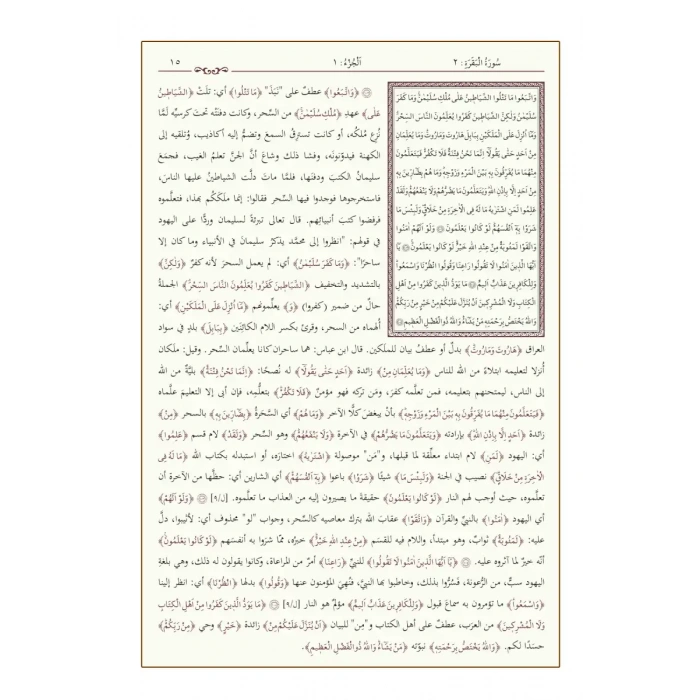 سُورَةُ الْبَقَرَةِ: ٢
اَلْجُزْءُ: ١
١٥
وَاتَّبَعُوا مَا تَتْلُوا الشَّيَاطِينُ عَلَى مُلْكِ سُلَيْمٰنَ وَمَا كَفَرَ
سُلَيْمٰنُ وَلٰكِنَّ الشَّيَاطِينَ كَفَرُوا يُعَلِّمُونَ النَّاسَ السِّحْرَ
وَمَا اُنْزِلَ عَلَى الْمَلَكَيْنِ بِبَابِلَ هَارُوتَ وَمَارُوتَ وَمَا يُعَلِّمَانِ
مِنْ اَحَدٍ حَتّٰى يَقُولَا اِنَّمَا نَحْنُ فِتْنَةٌ فَلَا تَكْفُرْ فَيَتَعَلَّمُونَ
مِنْهُمَا مَا يُفَرِّقُونَ بِهِ بَيْنَ الْمَرْءِ وَزَوْجِهِ وَمَا هُمْ بِضَارِّينَ بِهِ
مِنْ اَحَدٍ اِلَّا بِاِذْنِ اللّٰهِ وَيَتَعَلَّمُونَ مَا يَضُرُّهُمْ وَلَا يَنْفَعُهُمْ وَلَقَدْ
عَلِمُوا لَمَنِ اشْتَرٰيهُ مَا لَهُ فِي الْاٰخِرَةِ مِنْ خَلَاقٍ وَلَبِئْسَ مَا
شَرَوْا بِهِ اَنْفُسَهُمْ لَوْ كَانُوا يَعْلَمُونَ ۝ وَلَوْ اَنَّهُمْ اٰمَنُوا
وَاتَّقَوْا لَمَثُوبَةٌ مِنْ عِنْدِ اللّٰهِ خَيْرٌ لَوْ كَانُوا يَعْلَمُونَ ۝ يَا
اَيُّهَا الَّذِينَ اٰمَنُوا لَا تَقُولُوا رَاعِنَا وَقُولُوا انْظُرْنَا وَاسْمَعُوا
وَلِلْكَافِرِينَ عَذَابٌ اَلِيمٌ ۝ مَا يَوَدُّ الَّذِينَ كَفَرُوا مِنْ اَهْلِ
الْكِتَابِ وَلَا الْمُشْرِكِينَ اَنْ يُنَزَّلَ عَلَيْكُمْ مِنْ خَيْرٍ مِنْ رَبِّكُمْ
وَاللّٰهُ يَخْتَصُّ بِرَحْمَتِهِ مَنْ يَشَاءُ وَاللّٰهُ ذُو الْفَضْلِ الْعَظِيمِ ۝
۝ ﴿وَاتَّبَعُوا﴾ عطفٌ على "نَبَذَ" ﴿مَا تَتْلُوا﴾ أي: تلَتْ ﴿الشَّيَاطِينُ
عَلٰى﴾ عهدِ ﴿مُلْكِ سُلَيْمٰنَ﴾ من السِّحر، وكانت دفنَتْه تحتَ كرسيِّه لَمَّا
نُزِع مُلكُه، أو كانت تسترِقُ السمعَ وتضمُّ إليه أكاذيب، وتُلقيه إلى
الكهنة فيدوِّنونَه، وفشا ذلك وشاعَ أنَّ الجنَّ تعلمُ الغيب، فجمعَ
سليمانُ الكتبَ ودفنَها، فلمَّا ماتَ دلَّت الشياطينُ عليها الناسَ،
فاستخرجوها فوجدوا فيها السِّحر فقالوا: إنما ملَكَكُم بهذا، فتعلَّموه
فرفضوا كتبَ أنبيائِهم. قال تعالى تبرئةً لسليمان وردًّا على اليهود
في قولهم: "انظروا إلى محمَّد يذكرُ سليمانَ في الأنبياء وما كان إلا
ساحرًا": ﴿وَمَا كَفَرَ سُلَيْمٰنُ﴾ أي: لم يعمل السحرَ لأنه كفرٌ ﴿وَلٰكِنَّ﴾
بالتشديد والتخفيف ﴿الشَّيَاطِينَ كَفَرُوا يُعَلِّمُونَ النَّاسَ السِّحْرَ﴾ الجملةُ
حالٌ من ضمير (كفروا) ﴿وَ﴾ يعلِّمونهم ﴿مَا اُنْزِلَ عَلَى الْمَلَكَيْنِ﴾ أي:
أُلهماه من السحر، وقرئ بكسر اللام الكائنَين ﴿بِبَابِلَ﴾ بلدٍ في سواد
العراق ﴿هَارُوتَ وَمَارُوتَ﴾ بدلٌ أو عطفُ بيان للملَكين. قال ابن عباس: هما ساحران كانا يعلِّمان السِّحر. وقيل: ملَكان
أُنزلا لتعليمه ابتلاءً من الله للناس ﴿وَمَا يُعَلِّمَانِ مِنْ﴾ زائدة ﴿اَحَدٍ حَتّٰى يَقُولَا﴾ له نُصحًا: ﴿اِنَّمَا نَحْنُ فِتْنَةٌ﴾ بليَّةٌ من الله
إلى الناس، ليمتحنهم بتعليمه، فمن تعلَّمه كفرَ، ومَن تركه فهو مؤمنٌ ﴿فَلَا تَكْفُرْ﴾ بتعلُّمِه، فإن أبى إلا التعليمَ علَّماه
﴿فَيَتَعَلَّمُونَ مِنْهُمَا مَا يُفَرِّقُونَ بِهِ بَيْنَ الْمَرْءِ وَزَوْجِهِ﴾ بأنْ يبغضَ كلًّا الآخر ﴿وَمَا هُمْ﴾ أي السَّحَرةُ ﴿بِضَارِّينَ بِهِ﴾ بالسحر ﴿مِنْ﴾
زائدة ﴿اَحَدٍ اِلَّا بِاِذْنِ اللّٰهِ﴾ بإرادته ﴿وَيَتَعَلَّمُونَ مَا يَضُرُّهُمْ﴾ في الآخرة ﴿وَلَا يَنْفَعُهُمْ﴾ وهو السِّحر ﴿وَلَقَدْ﴾ لام قسم ﴿عَلِمُوا﴾
أي: اليهودُ ﴿لَمَنِ﴾ لام ابتداء معلِّقة لما قبلها، و"مَن" موصولة ﴿اشْتَرٰيهُ﴾ اختارَه، أو استبدلَه بكتاب الله ﴿مَا لَهُ فِي
الْاٰخِرَةِ مِنْ خَلَاقٍ﴾ نصيب في الجنة ﴿وَلَبِئْسَ مَا﴾ شيئًا ﴿شَرَوْا﴾ باعوا ﴿بِهِ اَنْفُسَهُمْ﴾ أي الشارين أي: حظَّها من الآخرة أن
تعلَّموه، حيث أوجبَ لهم النار ﴿لَوْ كَانُوا يَعْلَمُونَ﴾ حقيقةَ ما يصيرون إليه من العذاب ما تعلَّموه. [ل/٩] ۝ ﴿وَلَوْ اَنَّهُمْ﴾
أي اليهود ﴿اٰمَنُوا﴾ بالنبيِّ والقرآن ﴿وَاتَّقَوْا﴾ عقابَ الله بترك معاصيه كالسِّحر، وجواب "لو" محذوف أي: لأثيبوا، دلَّ
عليه: ﴿لَمَثُوبَةٌ﴾ ثوابٌ، وهو مبتدأ، واللام فيه للقسَم ﴿مِنْ عِنْدِ اللّٰهِ خَيْرٌ﴾ خبرُه، ممَّا شرَوا به أنفسَهم ﴿لَوْ كَانُوا يَعْلَمُونَ﴾
أنَّه خيرٌ لما آثَروه عليه. ۝ ﴿يَا اَيُّهَا الَّذِينَ اٰمَنُوا لَا تَقُولُوا﴾ للنبيِّ ﴿رَاعِنَا﴾ أمرٌ من المراعاة، وكانوا يقولون له ذلك، وهي بلغةِ
اليهود سبٌّ، من الرُّعونة، فسُرُّوا بذلك، وخاطبوا بها النبيَّ، فنُهِيَ المؤمنون عنها ﴿وَقُولُوا﴾ بدلها ﴿انْظُرْنَا﴾ أي: انظر إلينا
﴿وَاسْمَعُوا﴾ ما تؤمرون به سماعَ قبول ﴿وَلِلْكَافِرِينَ عَذَابٌ اَلِيمٌ﴾ مؤلمٌ هو النار [ل/٩] ۝ ﴿مَا يَوَدُّ الَّذِينَ كَفَرُوا مِنْ اَهْلِ الْكِتَابِ
وَلَا الْمُشْرِكِينَ﴾ من العرَب، عطفٌ على أهل الكتاب و"مِن" للبيان ﴿اَنْ يُنَزَّلَ عَلَيْكُمْ مِنْ﴾ زائدة ﴿خَيْرٍ﴾ وحي ﴿مِنْ رَبِّكُمْ﴾
حسَدًا لكم. ﴿وَاللّٰهُ يَخْتَصُّ بِرَحْمَتِهِ﴾ نبوّته ﴿مَنْ يَشَاءُ وَاللّٰهُ ذُو الْفَضْلِ الْعَظِيمِ﴾.